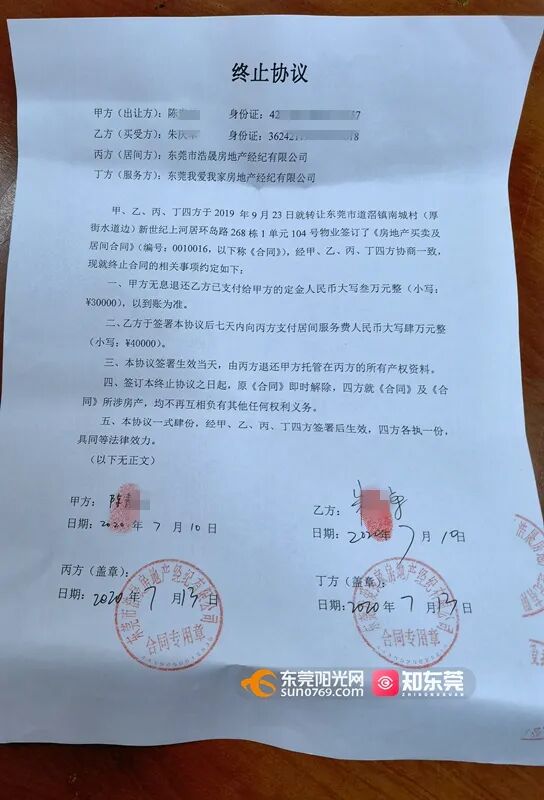 终止协议
甲方（出让方）：陈 身份证：42 7
乙方（买受方）：朱 身份证：36242 18
丙方（居间方）：东莞市浩晟房地产经纪有限公司
丁方（服务方）：东莞我爱我家房地产经纪有限公司
甲、乙、丙、丁四方于 2019 年 9 月 23 日就转让东莞市道滘镇南城村（厚
街水道边）新世纪上河居环岛路 268 栋 1 单元 104 号物业签订了《房地产买卖及
居间合同》（编号：0010016，以下称《合同》），经甲、乙、丙、丁四方协商一致，
现就终止合同的相关事项约定如下：
一、甲方无息退还乙方已支付给甲方的定金人民币大写叁万元整（小写：
¥30000），以到账为准。
二、乙方于签署本协议后七天内向丙方支付居间服务费人民币大写肆万元整
（小写：¥40000）。
三、本协议签署生效当天，由丙方退还甲方托管在丙方的所有产权资料。
四、签订本终止协议之日起，原《合同》即时解除，四方就《合同》及《合
同》所涉房产，均不再互相负有其他任何权利义务。
五、本协议一式肆份，经甲、乙、丙、丁四方签署后生效，四方各执一份，
具同等法律效力。
（以下无正文）
甲方：陈
乙方：朱
日期：2020 年 7 月 10 日
日期：2020 年 7 月 10 日
丙方（盖章）：
丁方（盖章）：
日期：2020 年 7 月 13 日
日期：2020 年 7 月 13 日
东莞市浩晟房地产经纪有限公司
合同专用章
房地产经纪有限公司
合同专用章
东莞阳光网
sun0769.com
知东莞
ZHIDONGGUAN